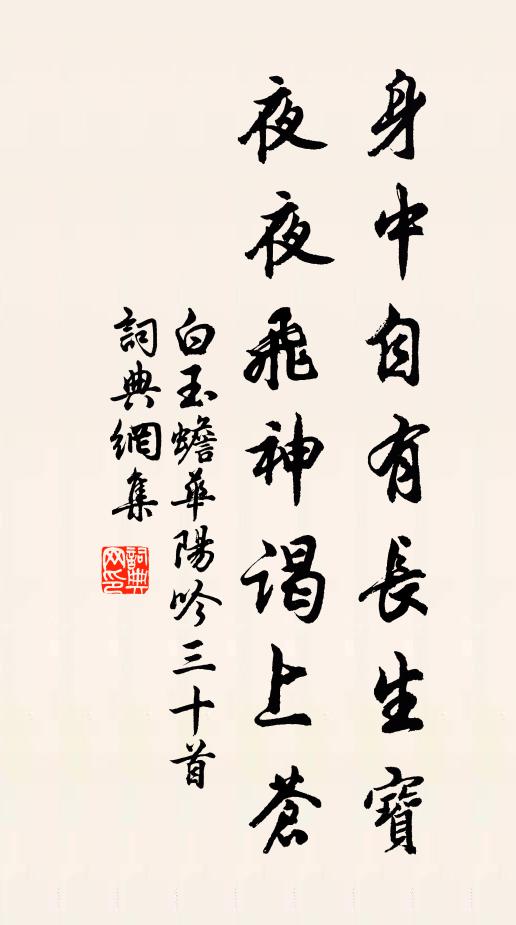 身中自有長生寶
夜夜飛神謁上蒼
白玉蟾華陽吟三十首
詞典網集
詞典网印